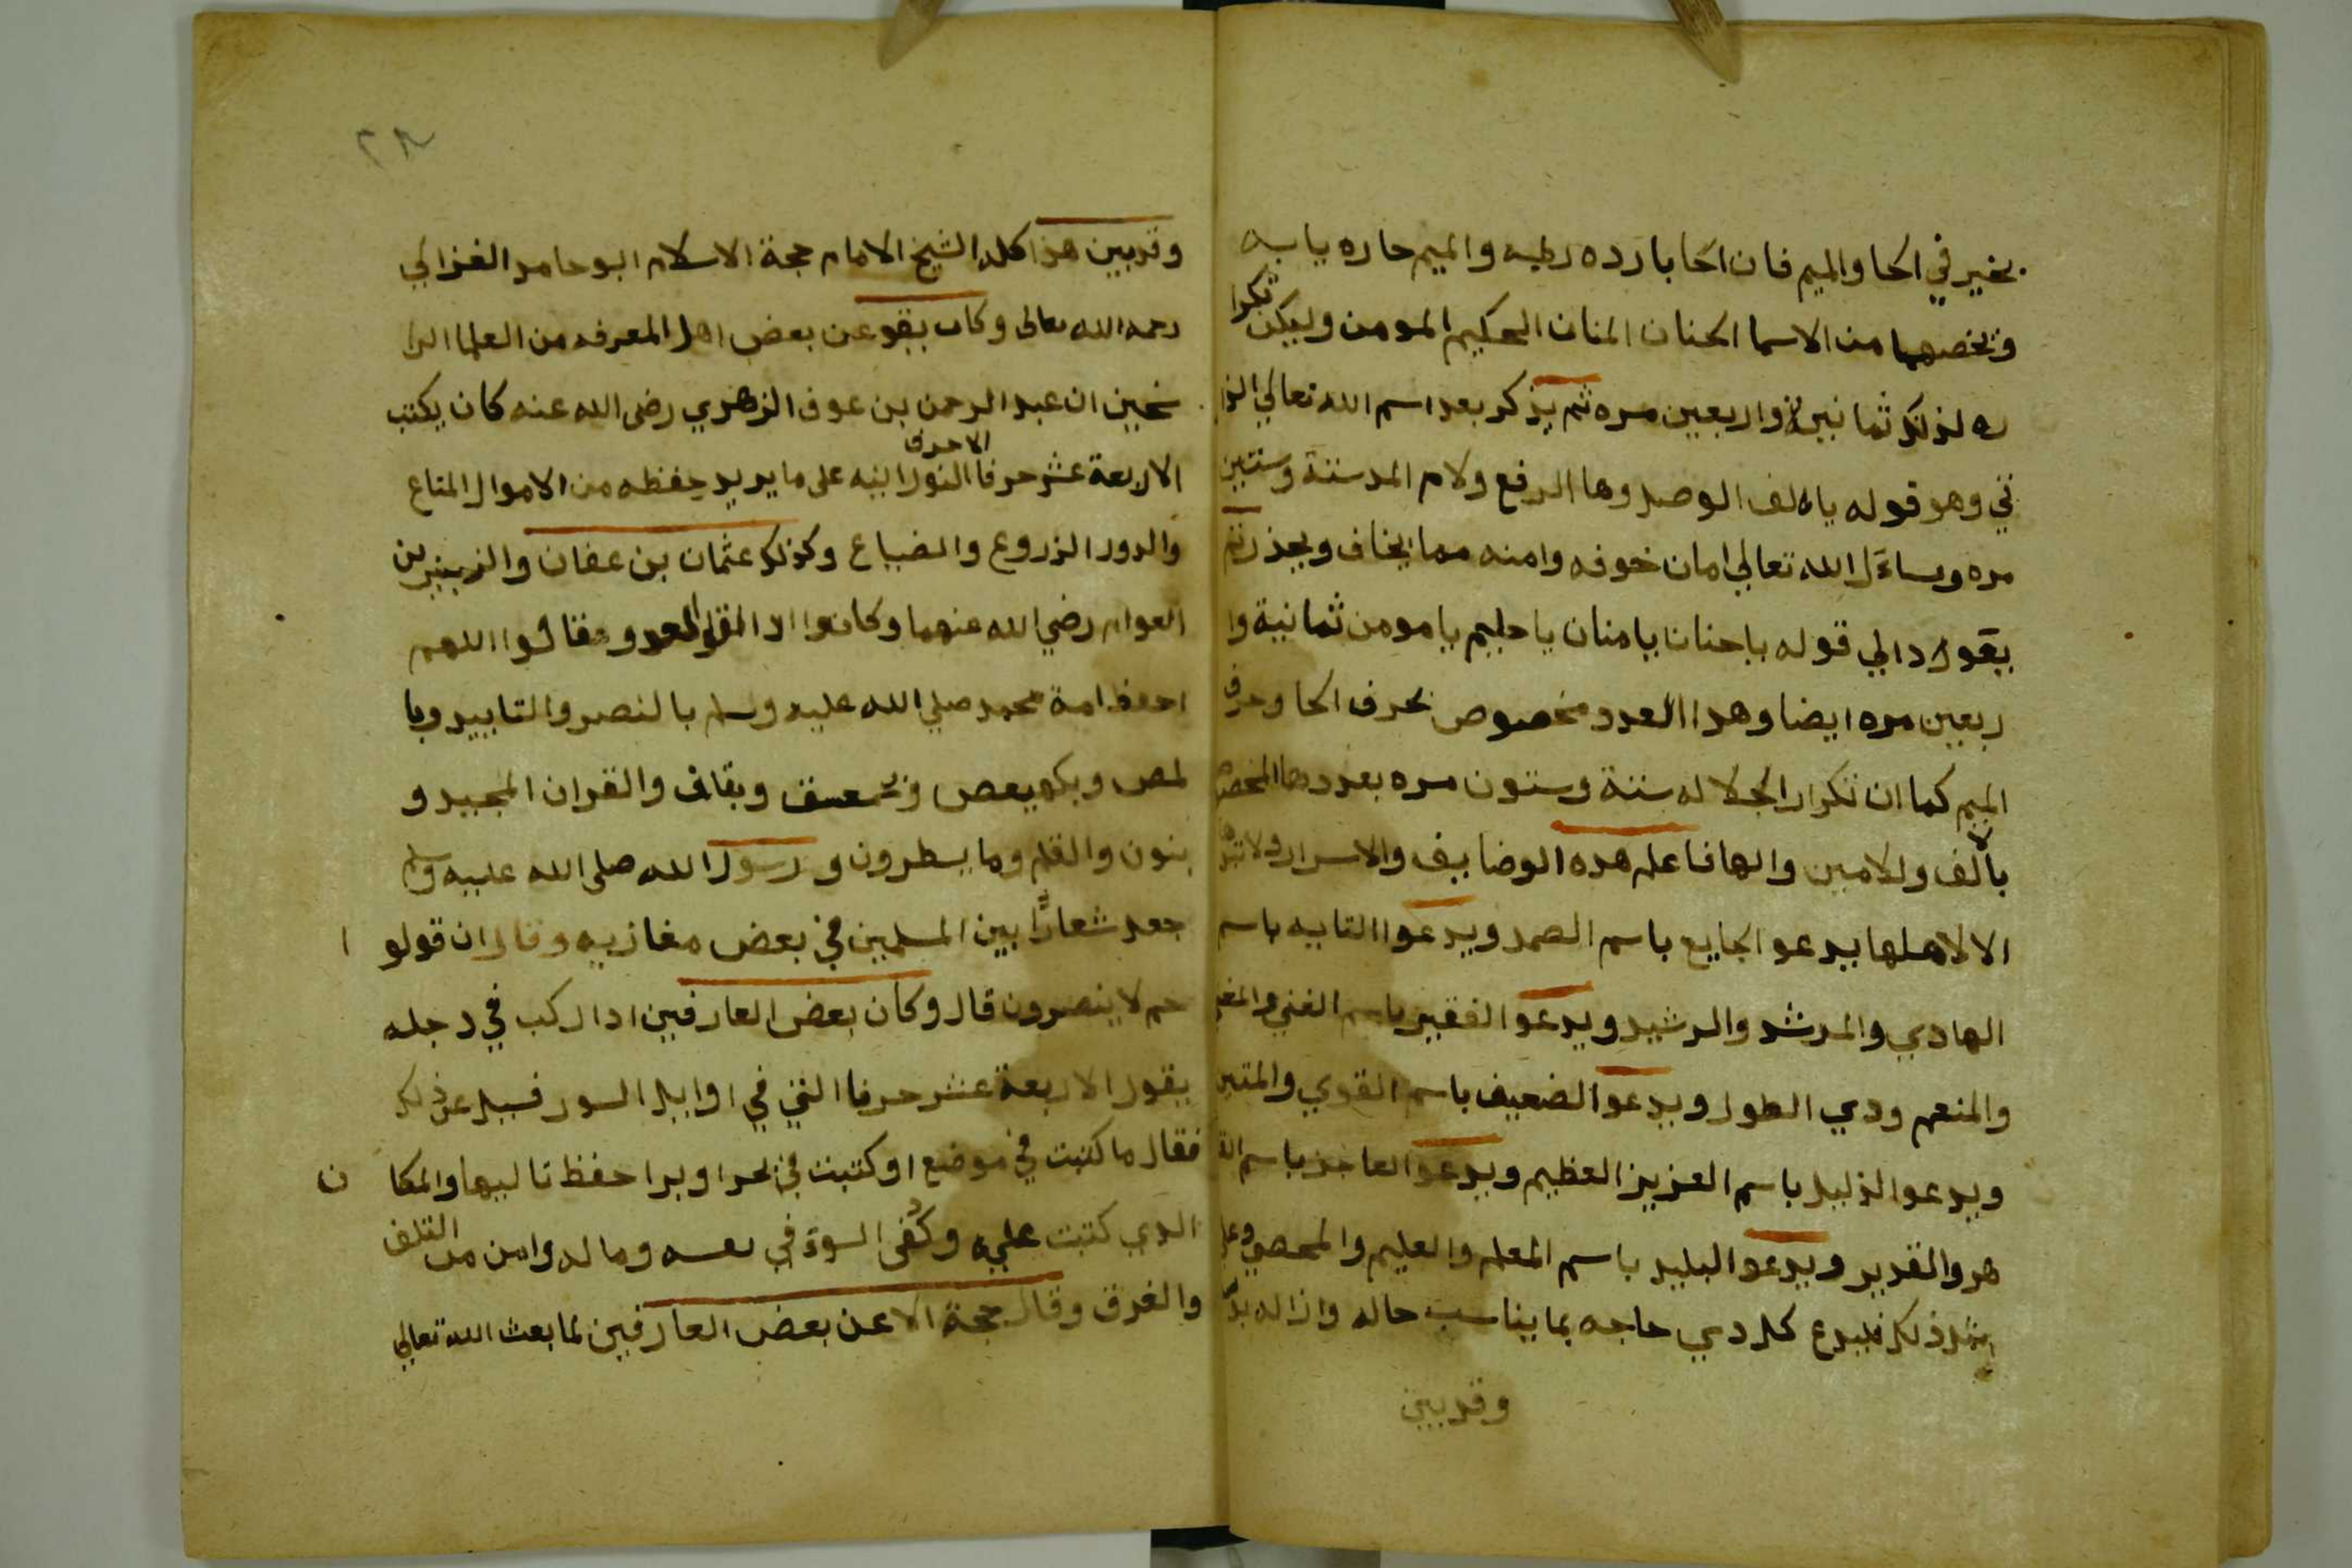 بخير في الحا والميم فان الحا بارده رطبه والميم حاره يابسه
وتخصهما من الاسما الحنان المنان الحكيم المومن وليكن تكرا
ره لذلك ثمانية واربعين مره ثم يذكر بعد اسم الله تعالي الذ
تي وهو قوله يا الف الوصل وها الرفع ولام المد ستة وستين
مره ويساءل الله تعالي امان خوفه وامنه مما يخاف ويحذر ثم
يقول دالي قوله ياحنان يامنان ياحليم يامومن ثمانية وا
ربعين مره ايضا وهدا العدد مخصوص بحرف الحا وحرف
الميم كما ان تكرار الجلاله ستة وستون مره بعددها المخصص
بالالف واللامين والها فاعلم هده الوضايف والاسرار ولا
الا لاهلها يدعو الجايع باسم الصمد ويدعوا التايه باسم
الهادي والمرشد والرشيد ويدعوا الفقير باسم الغني والمغني
والمنعم ودي الطول ويدعوا الضعيف باسم القوي والمتين
ويدعوا الذليل باسم العزيز العظيم ويدعوا العاجز باسم القا
هر والقدير ويدعوا البليد باسم المعلم والعليم والمحصي وعلي
مثل ذلك فليدع كل دي حاجه بما يناسب حاله وازاله
وقد بين
٢٨
وقد بين هذا كله الشيخ الامام حجة الاسلام ابو حامد الغزالي
رحمه الله تعالى وكان يقو عن بعض اهل المعرفه من العلما الرا
سخين ان عبد الرحمن بن عوف الزهري رضى الله عنه كان يكتب
الاحرف
الاربعة عشر حرفا النورانيه على ما يريد حفظه من الاموال المتاع
والدور الزروع والضياع وكذلك عثمان بن عفان والزبير بن
العوام رضي الله عنهما وكانوا اذا العدو وقالوا اللهم
احفظ امة محمد صلي الله عليه وسلم بالنصر والتاييد وبا
لمص وبكهيعص وبحمعسق وبقاف والقران المجيد و
بنون والقلم وما يسطرون و رسول الله صلى الله عليه وسلم
جعل شعارًا بين المسلمين في بعض مغازيه وقال ان قولو ا
حم لا ينصرون قال وكان بعض العارفين ادا ركب في دجله
يقول الاربعة عشر حرفا التي في اوايل السور فسيل عن ذلك
فقال ما كتبت في موضع او كتبت في بحرا وبرا حفظ تاليها والمكا ن
الدي كتبت عليه وكُفى السوء في نفسه وماله وامن من التلف
والغرق وقال حجة الا عن بعض العارفين لما بعث الله تعالي